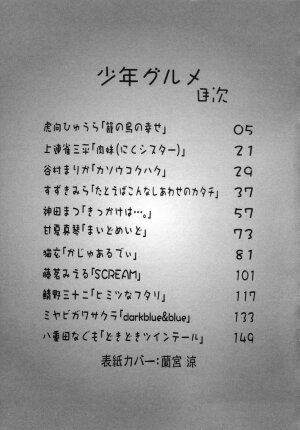 少年グルメ
目次
虎向ひゅうら「籠の鳥の幸せ」 05
上連雀三平「肉妹(にくシスター)」 21
谷村まりか「カソウコクハク」 29
すずきみら「たとえばこんなしあわせのカタチ」 37
神田まつ「きっかけは…。」 57
甘夏真琴「まいとめいと」 73
猫玄「かじゅあるでぃ」 81
藤若みえる「SCREAM」 101
鱗野三十二「ヒミツなフタリ」 117
ミヤビガワサクラ「darkblue&blue」 133
八重田なぐも「どきどきツインテール」 149
表紙カバー:蘭宮 涼